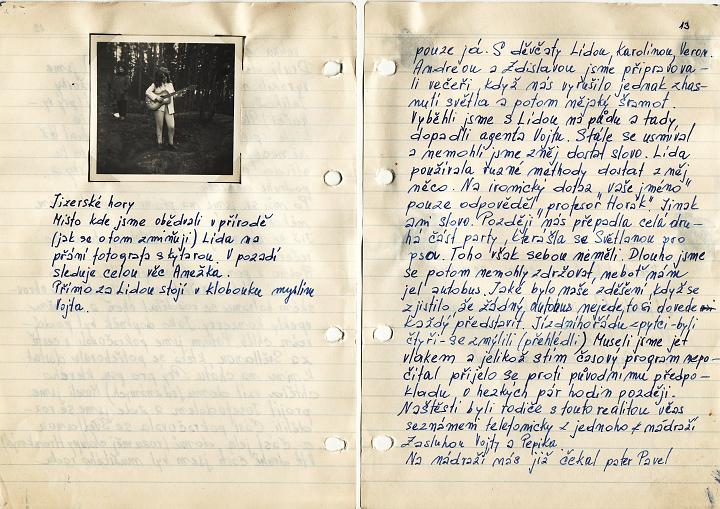 Jizerské hory
Místo kde jsme obědvali v přírodě
(jak se o tom zmiňuji) Lida na
přání fotografa s kytarou. V pozadí
sleduje celou věc Anežka.
Přímo za Lidou stojí v klobouku myslím
Vojta.
13
pouze já. S děvčaty Lídou, Karolínou, Veron.
Andreou a Zdislavou jsme připravova-
li večeři, když nás vyrušilo jednak zhas-
nutí světla a potom nějský šramot.
Vyběhli jsme s Lidou na půdu a tady,
dopadli agenta Vojtu. Stále se usmíval
a nemohli jsme z něj dostat slovo. Lída
používala různé methody dostat z něj
něco. Na ironický dotaz "vaše jméno"
pouze odpověděl "profesor Horák" Jinak
ani slovo. Později nás přepadla celá dru-
há část party, která šla se Světlanou pro
psov. Toho však sebou neměli. Dlouho jsme
se potom nemohly zdržovat, neboť nám
jel autobus. Jaké bylo naše zděšení, když se
zjistilo, že žádný autobus nejede, to si dovede
každý představit. Jízdního řádu zpytci - byli
čtyři - se zmýlili (přehlédli) Museli jsme jet
vlakem a jelikož s tím časový program nepo-
čítal přijelo se proti původnímu předpo-
kladu o hezkých pár hodin později.
Naštěstí byli rodiče s touto realitou včas
seznámeni telefonicky z jednoho z nádraží
Zásluhou Vojty a Pepika.
Na nádraží nás již čekal pater Pavel